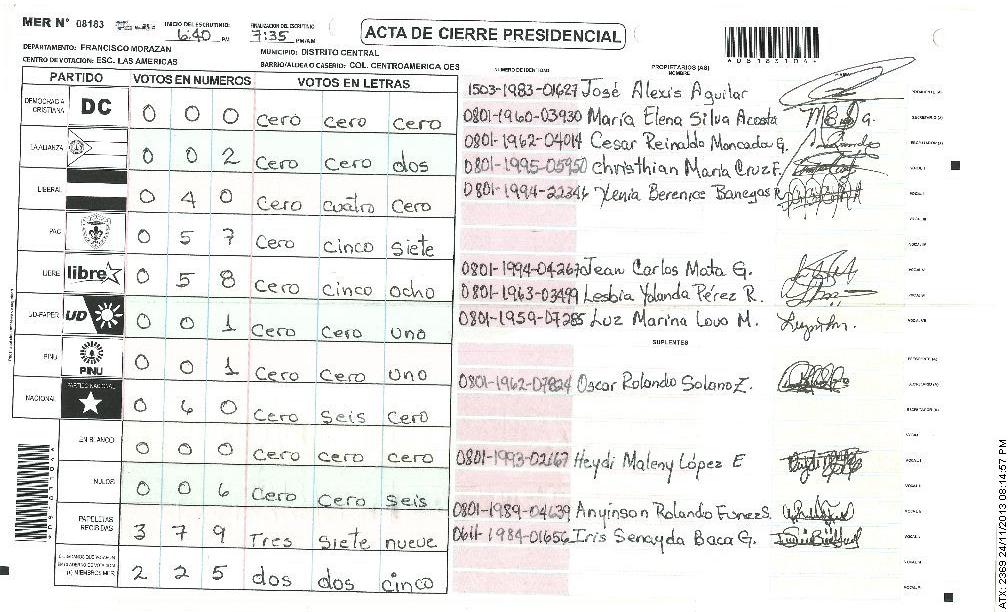 MER N° 08183
INICIO DEL ESCRUTINIO: 6:40 PM
FINALIZACION DEL ESCRUTINIO 7:35 PM/AM
ACTA DE CIERRE PRESIDENCIAL
DEPARTAMENTO: FRANCISCO MORAZAN
MUNICIPIO: DISTRITO CENTRAL
CENTRO DE VOTACION: ESC. LAS AMERICAS
BARRIO/ALDEA O CASERIO: COL. CENTROAMERICA OES
PARTIDO VOTOS EN NUMEROS VOTOS EN LETRAS
DEMOCRACIA CRISTIANA DC 0 0 0 cero cero cero
LA ALIANZA 0 0 2 cero cero dos
LIBERAL 0 4 0 cero cuatro cero
PAC 0 5 7 cero cinco siete
LIBRE libre 0 5 8 cero cinco ocho
UD-FAPER UD 0 0 1 cero cero uno
PINU PINU 0 0 1 cero cero uno
NACIONAL PARTIDO NACIONAL 0 6 0 cero seis cero
EN BLANCO 0 0 0 cero cero cero
NULOS 0 0 6 cero cero seis
PAPELETAS RECIBIDAS 3 7 9 Tres siete nueve
2 2 5 dos dos cinco
NUMERO DE IDENTIDAD PROPIETARIOS (AS) NOMBRE
1503-1983-01627 José Alexis Aguilar
0801-1960-03930 María Elena Silva Acosta
0801-1962-04014 Cesar Reinaldo Moncada G.
0801-1995-05950 Christhian María Cruz F.
0801-1994-22346 Xenia Berenice Banegas R.
0801-1994-04267 Jean Carlos Mata G.
0801-1963-03499 Lesbia Yolanda Pérez R.
0801-1959-07285 Luz Marina Lovo M.
SUPLENTES
0801-1962-07824 Oscar Rolando Solano Z.
0801-1993-02167 Heydi Maleny López E
0801-1989-04639 Anyinson Rolando Funez S.
0611-1984-01656 Iris Senayda Baca G.
ATX: 2369 24/11/2013 08:14:57 PM